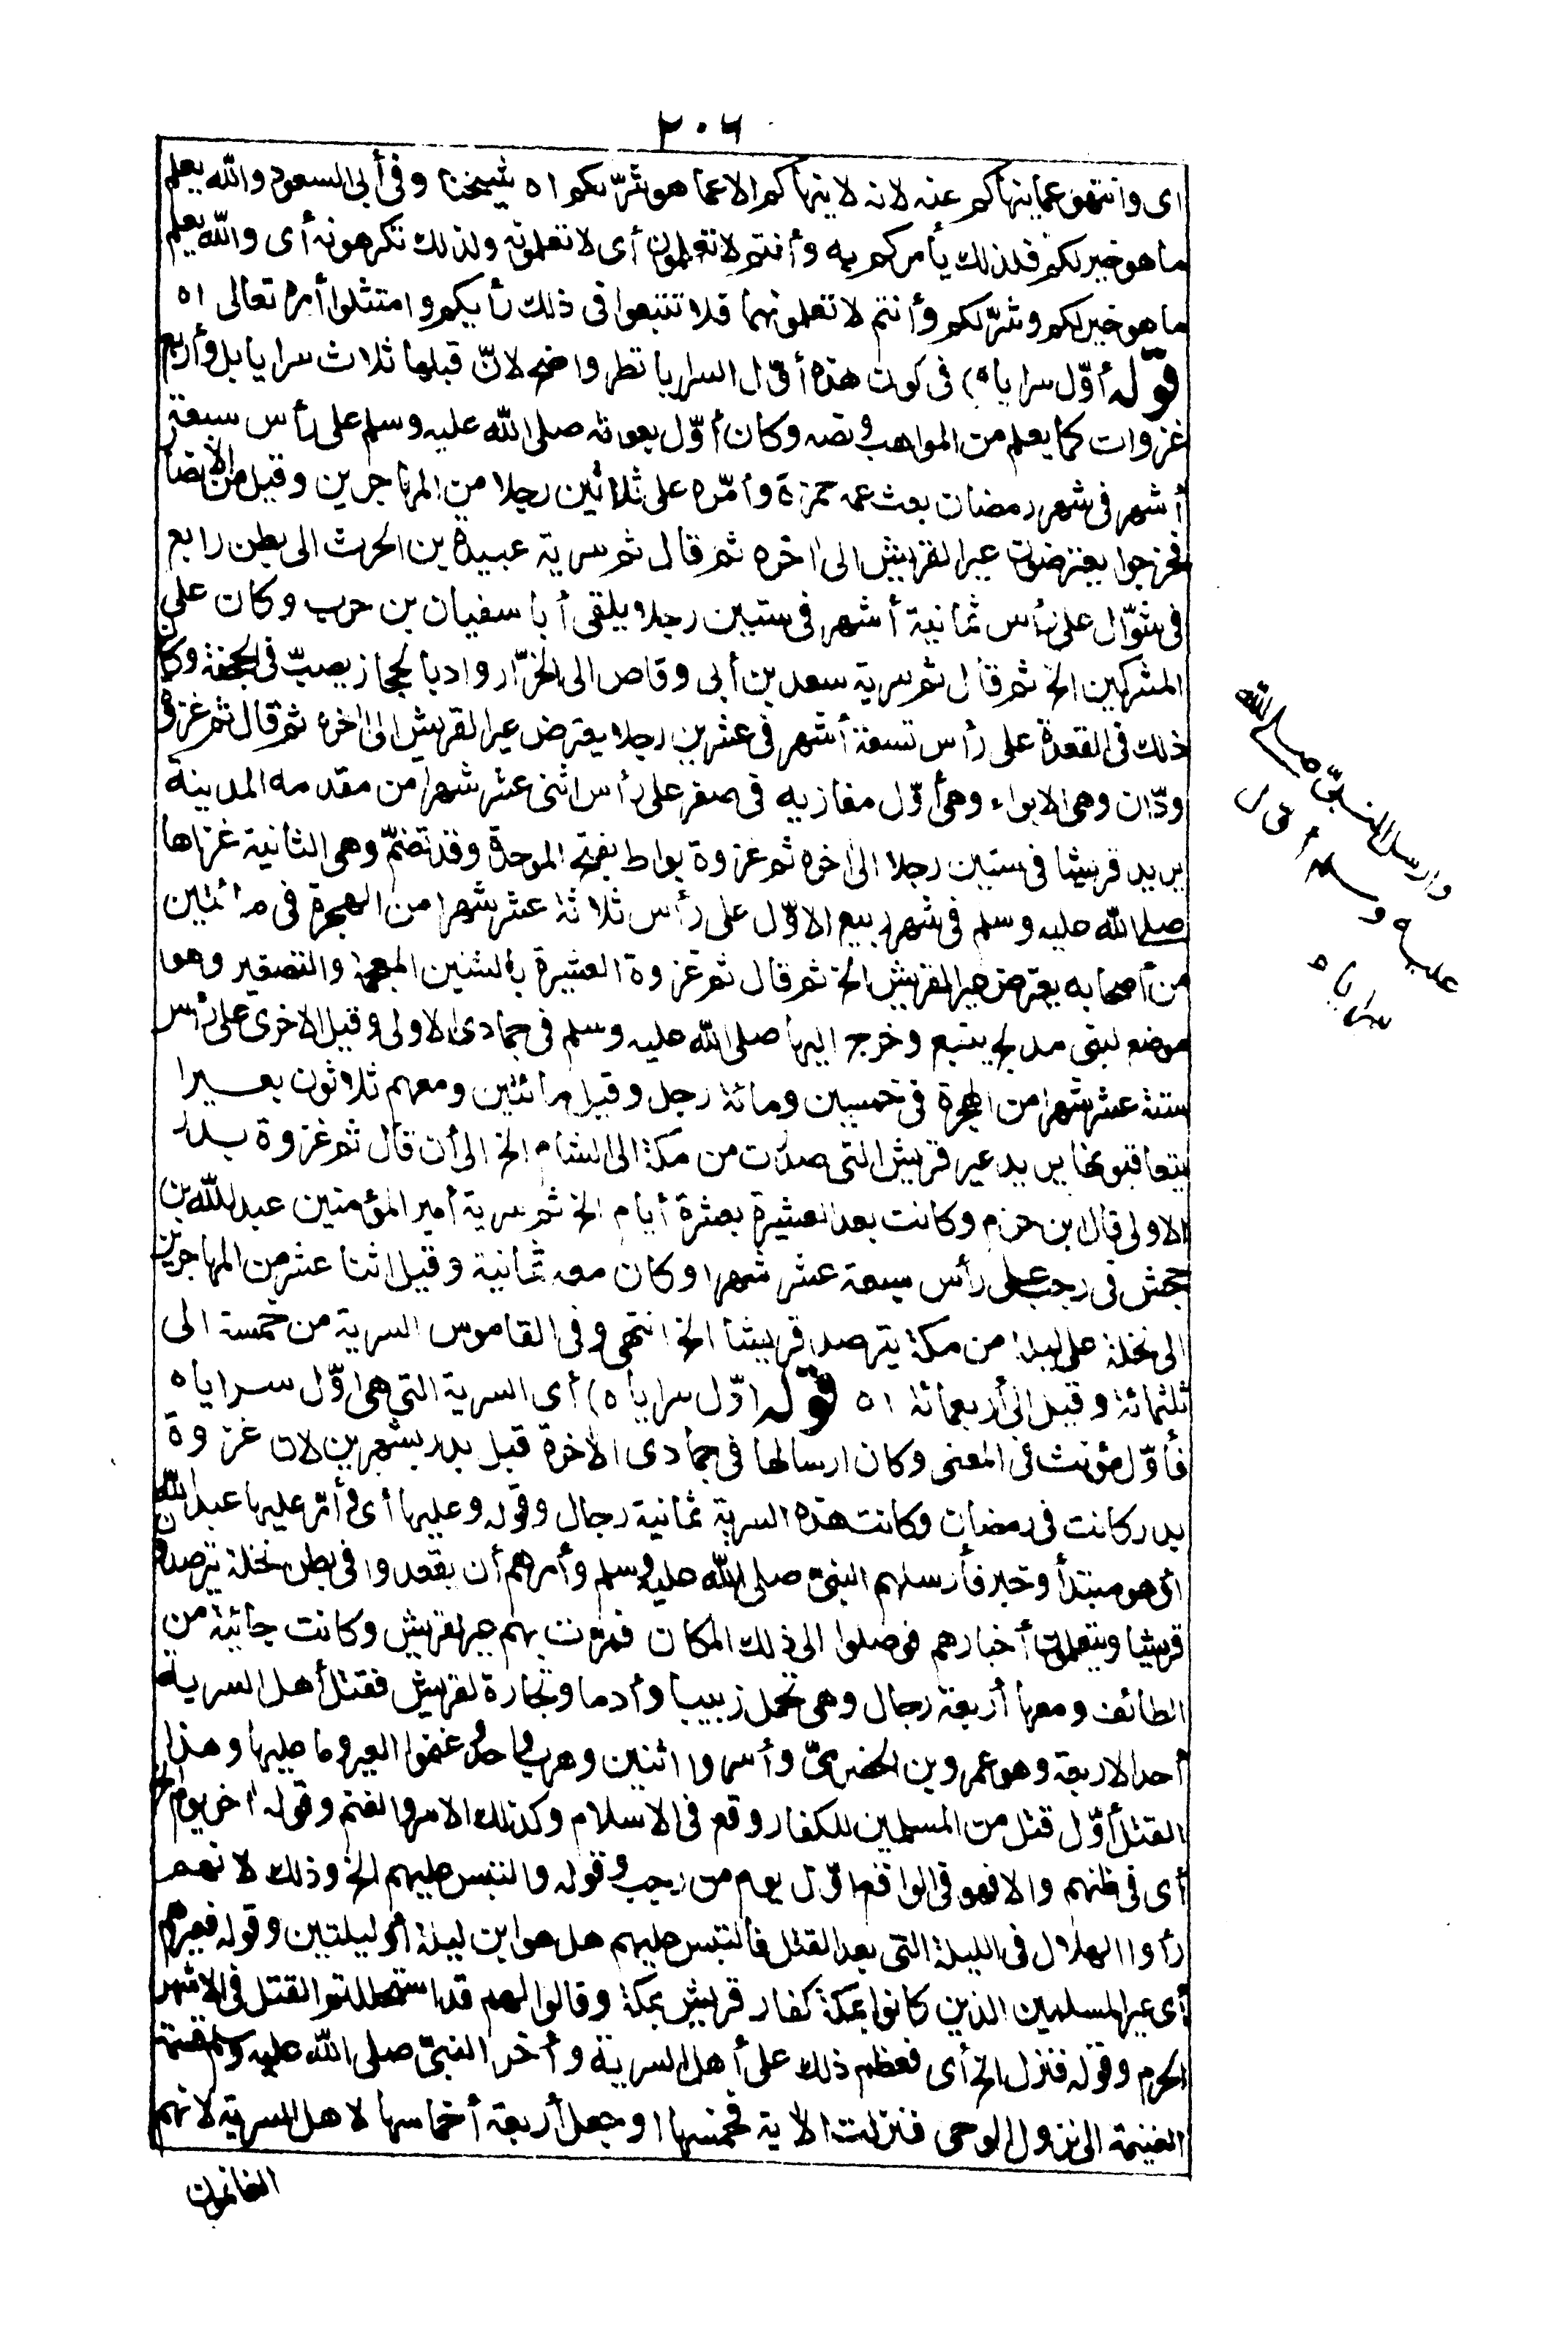 ٢٠٦
اى وانتهو عما ينهاكم عنه لانه لا ينهاكم الا عما هو شرّ لكم اه شيخنا وفى أبى السعود والله يعلم
ما هو خير لكم فلذلك يأمركم به وأنتم لا تعلمون أى لا تعلمونه ولذلك تكرهونه أى والله يعلم
ما هو خير لكم وشرّ لكم وأنتم لا تعلمونهما فلا تتبعوا فى ذلك رأيكم وامتثلوا أمره تعالى اه
قوله أوّل سراياه) فى كون هذه أوّل السرايا نظر واضح لانّ قبلها ثلاث سرايا بل وأربع
غزوات كما يعلم من المواهب ونصه وكان أوّل بعوثه صلى الله عليه وسلم على رأس سبعة
أشهر فى شهر رمضان بعث عمه حمزة وأمّره على ثلاثين رجلا من المهاجرين وقيل من الانصار
فخرجوا يعترضون عيرا لقريش الى اخره ثم قال ثم سرية عبيدة بن الحرث الى بطن رابغ
فى شوّال على رأس ثمانية أشهر فى ستين رجلا ويلقى أبا سفيان بن حرب وكان على
المشركين الخ ثم قال ثم سرية سعد بن أبى وقاص الى الخرّار واد بالحجاز يصبّ فى الجحفة وكان
ذلك فى القعدة على رأس تسعة أشهر فى عشرين رجلا يعترض عيرا لقريش الى اخره ثم قال ثم غزوة
ودّان وهى الابواء وهى أوّل مغازيه فى صفر على رأس اثنى عشر شهرا من مقدمه المدينة
يريد قريشا فى ستين رجلا الى اخره ثم غزوة بواط بفتح الموحدة وقد تضمّ وهى الثانية غزاها
صلى الله عليه وسلم فى شهر ربيع الاوّل على رأس ثلاثة عشر شهرا من الهجرة فى مائتين
من أصحابه يعترض عيرا لقريش الخ ثم قال ثم غزوة العشيرة بالشين المعجمة والتصغير وهو
موضع لبنى مدلج بينبع وخرج اليها صلى الله عليه وسلم فى جمادى الاولى وقيل الاخرى على رأس
ستة عشر شهرا من الهجرة فى خمسين ومائة رجل وقيل مائتين ومعهم ثلاثون بعيرا
يتعاقبونها يريد عير قريش التى صدرت من مكة الى الشام الخ الى أن قال ثم غزوة بدر
الاولى قال بن حزم وكانت بعد العشيرة بعشرة أيام الخ ثم سرية أمير المؤمنين عبد الله بن
جحش فى رجب على رأس سبعة عشر شهرا وكان معه ثمانية وقيل اثنا عشر من المهاجرين
الى نخلة على ليلة من مكة يترصد قريشا الخ انتهى وفى القاموس السرية من خمسة الى
ثلثمائة وقيل الى أربعمائة اه قوله اوّل سراياه) أى السرية التى هى اوّل سراياه
فأوّل مؤنث فى المعنى وكان ارسالها فى جمادى الاخرة قبل بدر بشهرين لان غزوة
بدر كانت فى رمضان وكانت هذه السرية ثمانية رجال وقوله وعليها أى وأمّر عليها عبد الله
اى هو مبتدأ وخبر فأرسلهم النبىّ صلى الله عليه وسلم وأمرهم أن يقعدوا فى بطن نخلة يترصدون
قريشا ويتعلمون أخبارهم فوصلوا الى ذلك المكان فمرّت بهم عير لقريش وكانت جائية من
الطائف ومعها أربعة رجال وهى تحمل زبيبا وأدما وتجارة لقريش فقتل أهل السرية
أحد الاربعة وهو عمرو بن الحضرمىّ وأسروا اثنين وهرب واحد وغنموا العير وما عليها وهذا
القتل أوّل قتل من المسلمين للكفار وقع فى الاسلام وكذلك الاسر والغنم وقوله اخر يوم الخ
أى فى ظنهم والا فهو فى الواقع اوّل يوم من رجب وقوله والتبس عليهم الخ وذلك لانهم
رأوا الهلال فى الليلة التى بعد القتل فالتبس عليهم هل هو ابن ليلة أو ليلتين وقوله فعيرهم
أى عير المسلمين الذين كانوا بمكة كفار قريش بمكة وقالوا لهم قد استحللتم القتل فى الاشهر
الحرم وقوله فنزل الخ أى فعظم ذلك على أهل السرية وأخر النبىّ صلى الله عليه وسلم قسمة
الغنيمة الى نزول الوحى فنزلت الاية فخمسها وجعل أربعة أخماسها لاهل السرية لانهم
الغانمون
وارسل النبىّ صلى الله
عليه وسلم أوّل
سراياه